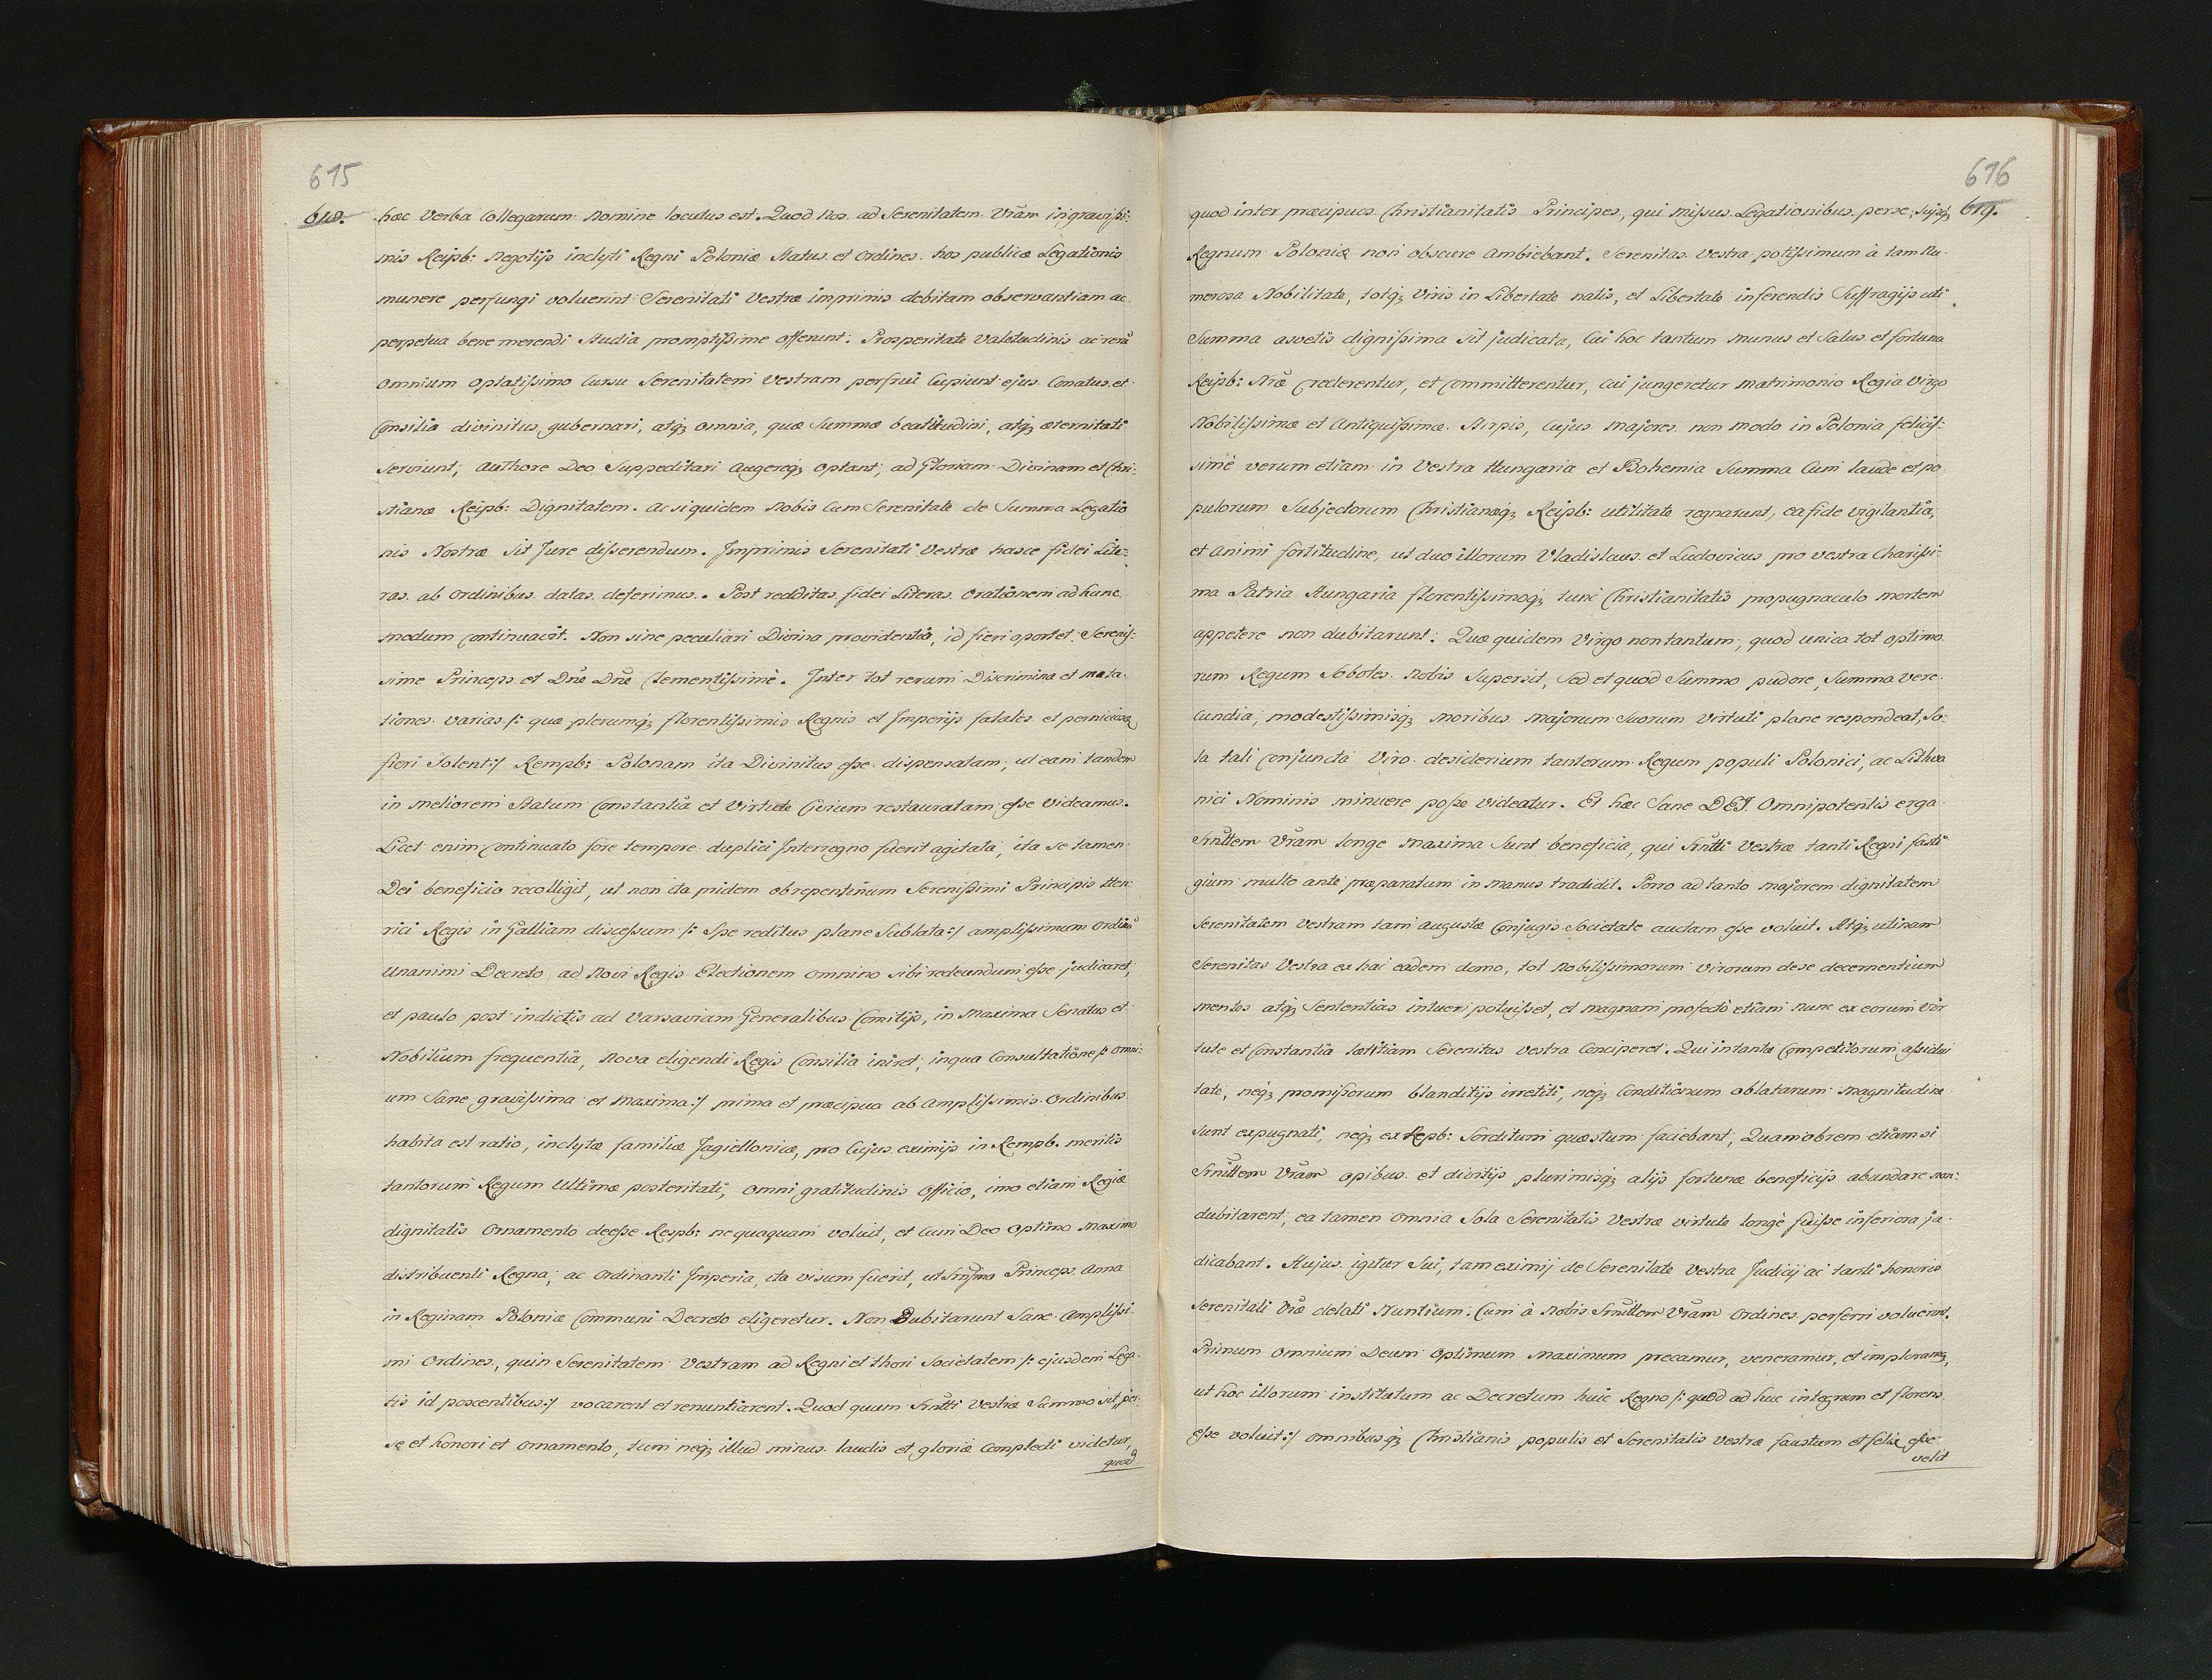 615
618.
hæc Verba Collegarum Nomine locutus est. Quod Nos ad Serenitatem Vram in gravissi-
mis Reipb: Negotijs inclyti Regni Poloniæ Status et Ordines hos publicæ Legationis
munere perfungi voluerint Serenitati Vestræ imprimis debitam observantiam ac
perpetua bene merendi Studia promptissime offerunt. Prosperitate Valetudinis ac rerū
omnium optatissimo Cursu Serenitatem Vestram perfrui Cupiunt ejus Conatus et
Consilia divinitus gubernari, atq; omnia, quæ Summæ beatitudini, atq; æternitati
serviunt, Authore Deo Suppeditari Augereq; optant, ad Gloriam Divinam et Chri-
stianæ Reipb: Dignitatem. Ac siquidem Nobis Cum Serenitate de Summa Legatio
nis Nostræ Sit Jure disserendum. Imprimis Serenitati Vestræ hasce fidei Lite-
ras ab Ordinibus datas deferimus. Post redditas fidei Literas Orationem ad hunc
modum Continuavit. Non sine peculiari Divina providentia, id fieri oportet. Sereniſ-
sime Princeps et Dnē Dnē Clementissimè. Inter tot rerum Discrimina et muta-
tiones varias /: quæ plerumq; florentissimis Regnis et Imperijs fatales et perniciosæ
fieri Solent :/ Rempb: Polonam ita Divinitus esse dispensatam, ut eam tandem
in meliorem Statum Constantia et Virtute Civium restauratam esse Videamus.
Licet enim Continuato fere tempore duplici Interregno fuerit agitata, ita se tamen
Dei beneficio recolligit, ut non ita pridem ob repentinum Serenissimi Principis Hen-
rici Regis in Galliam discessum /: Spe reditus plane Sublata :/ amplissimum Ordinū
Unanimi Decreto ad Novi Regis Electionem omnino sibi redeundum esse judicaret,
et paulo post indictis ad Varsaviam Generalibus Comitijs, in Maxima Senatus et
Nobilium frequentia, Nova eligendi Regis Consilia iniret, in qua Consultatione /: omni-
um Sane gravissima et Maxima :/ prima et præcipua ab Amplissimis Ordinibus
habita est ratio, inclytæ familiæ Jagiellonicæ, pro Cujus eximijs in Rempb. meritis
tantorum Regum Ultimæ posteritati, omni gratitudinis Officio, imo etiam Regiæ
dignitatis Ornamento deesse Respb: nequaquam voluit, et Cum Deo Optimo Maximo
distribuenti Regna, ac Ordinanti Imperia, ita visum fuerit, ut Srnssma Princeps Anna
in Reginam Poloniæ Communi Decreto eligeretur. Non Dubitarunt Sane Amplissi
mi Ordines, quin Serenitatem Vestram ad Regni et thori Societatem /: ejusdem Lega-
tis id poscentibus :/ vocarent et renuntiarent. Quod quum Srntti Vestræ Summo sit per
se et honori et ornamento, tum neq; illud minus laudis et gloriæ Complecti videtur,
quod
676
619.
quod inter præcipuos Christianitatis Principes, qui missis Legationibus per se, suisq;
Regnum Poloniæ non obscure Ambiebant. Serenitas Vestra potissimum à tam Nu-
merosa Nobilitate, totq; Viris in Libertate natis, et Libertate inferendis Suffragijs uti
Summa asvetis dignissima sit judicata, Cui hoc tantum Munus et Salus et fortuna
Reipb: Nræ Crederentur, et Committerentur, Cui jungeretur matrimonio Regia Virgo
Nobilissimæ et Antiquissimæ Stirpis, Cujus Majores non modo in Polonia feliciſ-
simè verum etiam in Vestra Hungaria et Bohemia Summa Cum laude et po
pulorum Subjectorum Christianæq; Reipb: utilitate regnarunt, ea fide vigilantia,
et Animi fortitudine, ut duo illorum Vladislaus et Ludovicus pro vestra Charissi-
ma Patria Hungaria florentissimoq; tunc Christianitatis propugnaculo mortem
appetere non dubitarunt. Quæ quidem Virgo non tantum, quod unica tot optimo
rum Regum Soboles Nobis Supersit, Sed et quod Summo pudore, Summa Vere-
cundia, modestissimisq; Moribus Majorum Suorum Virtuti plane respondeat, So-
la tali Conjuncta Viro desiderium tantorum Regum populi Polonici, ac Lithva
nici Nominis minuere posse videatur. Et hæc Sane DEI Omnipotentis erga
Srnittem Vram longe Maxima Sunt beneficia, qui Srntti Vestræ tanti Regni fasti
gium multo ante præparatum in manus tradidit. Porro ad tanto Majorem dignitatem
Serenitatem Vestram tam Augustæ Conjugis Societate auctam esse voluit. Atq; utinam
Serenitas Vestra ex hac eadem domo, tot Nobilissimorum Virorum de se decernentium
mentes atq; Sententias intueri potuisset, et magnam profectò etiam nunc ex eorum Vir
tute et Constantia lætitiam Serenitas Vestra Conciperet. Qui in tanta Competitorum assidui
tate, neq; promissorum blanditijs irretiti, neq; Conditionum oblatarum Magnitudine
Sunt expugnati, neq; ex Repb: Sorditum quæstum faciebant, Quamobrem etiamsi
Srnittem Vram opibus et divitijs plurimisq; alijs fortunæ beneficijs abundare non
dubitarent, ea tamen omnia Sola Serenitatis Vestræ virtute longè fuisse inferiora ju-
dicabant. Hujus igitur Sui, tam eximij de Serenitate Vestra Judicij ac tanti honoris
Serenitati Vræ delati Nuntium. Cum à Nobis Srnittem Vram Ordines perferri voluerint.
Primum Omnium Deum Optimum Maximum precamur, veneramur, et imploramq,
ut hoc illorum institutum ac Decretum huic Regno /: quod ad huc integrum et florens
esse voluit :/ omnibusq; Christianis populis et Serenitatis Vestræ faustum et felix esse
velit